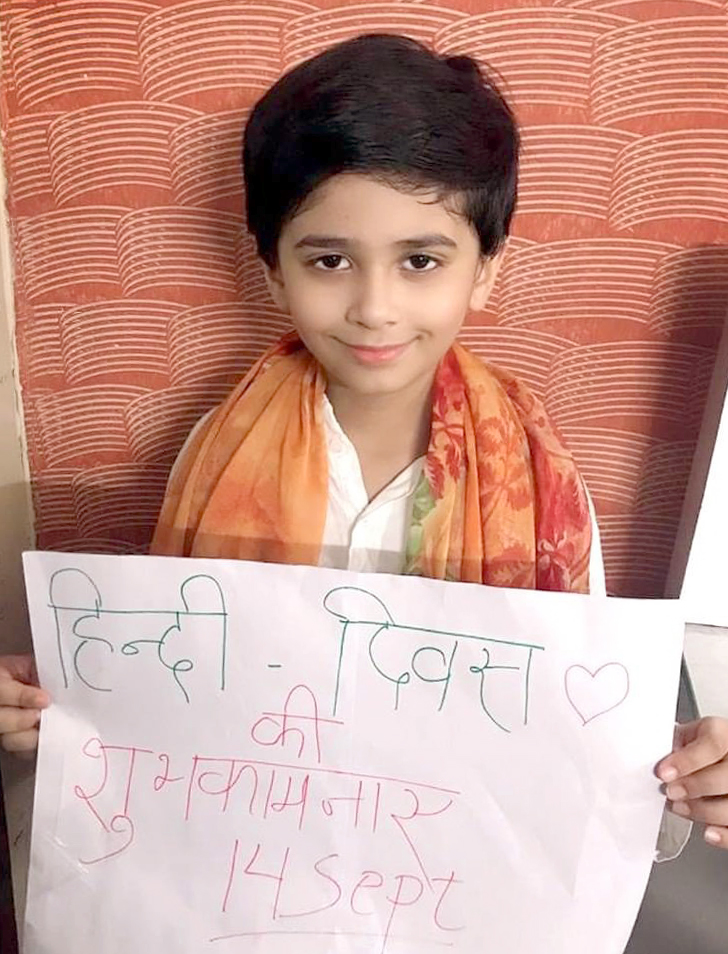 हिन्दी - दिवस
की
शुभकामनाए
14 Sept